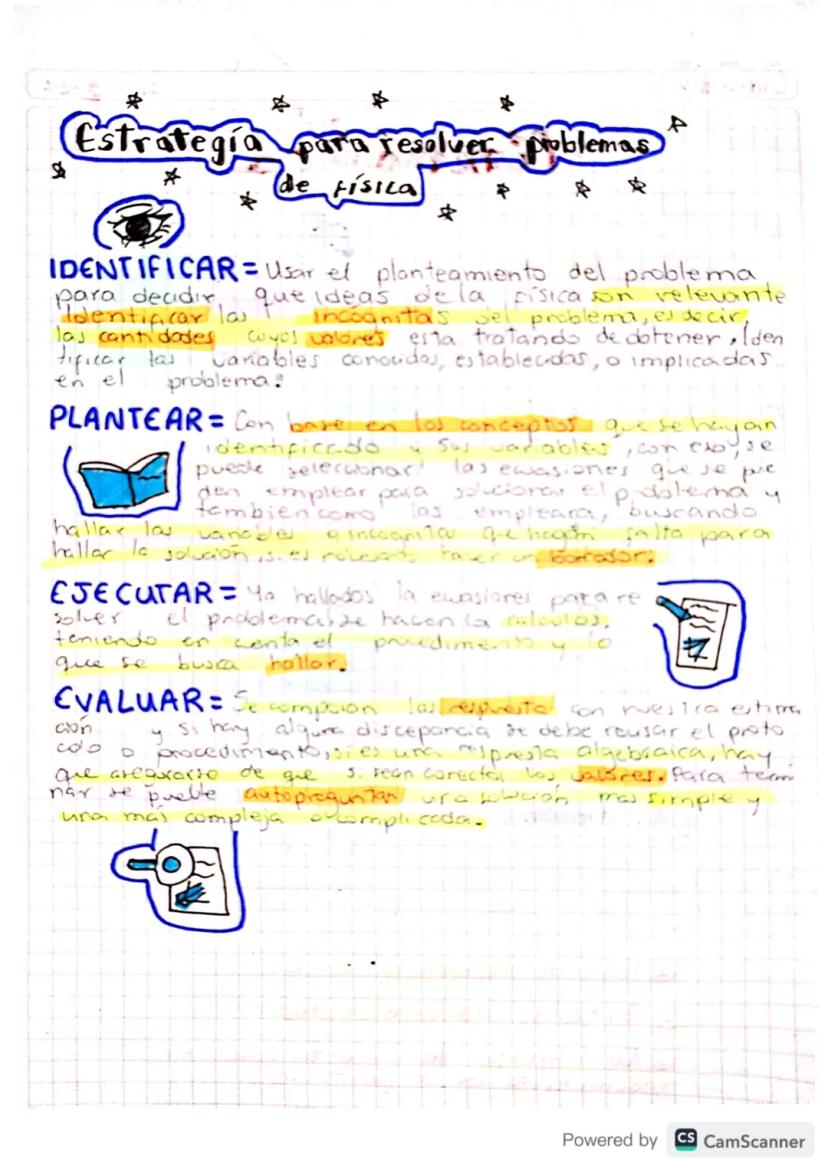 Estrategía para resolver problemas
de física
IDENTIFICAR = Usar el planteamiento del problema
para decidir que ideas de la física son relevante
identificar las incognitas del problema, es decir,
las cantidades cuyos valores esta tratando de obtener. Iden
tificar las variables conocidas, establecidas, o implicadas
en el problema.
PLANTEAR = Con base en los conceptos que se hayan
identificado y sus variables, con eso, se
puede seleccionar las ecuasiones que se pue
den emplear para solucionar el problema y
tambien como las empleara, buscando
hallar las variables o incognitas que hagan falta para
hallar la solución, si es necesario hacer un borrador.
EJECUTAR = Ya hallados la ecuasiones para re
solver el problema, se hacen la calculos,
teniendo en cuenta el procedimiento y lo
que se busca hallar.
EVALUAR = Se comparan las respuesta con nuestra estima
ción y si hay alguna discepancia se debe reusar el proto
colo o procedimiento, si es una respuesta algebraica, hay
que asegurarse de que si sean correctos los valores. Para termi
nar se puede autopreguntar una solución mas simple y
una más compleja o complicada.
Powered by CS CamScanner